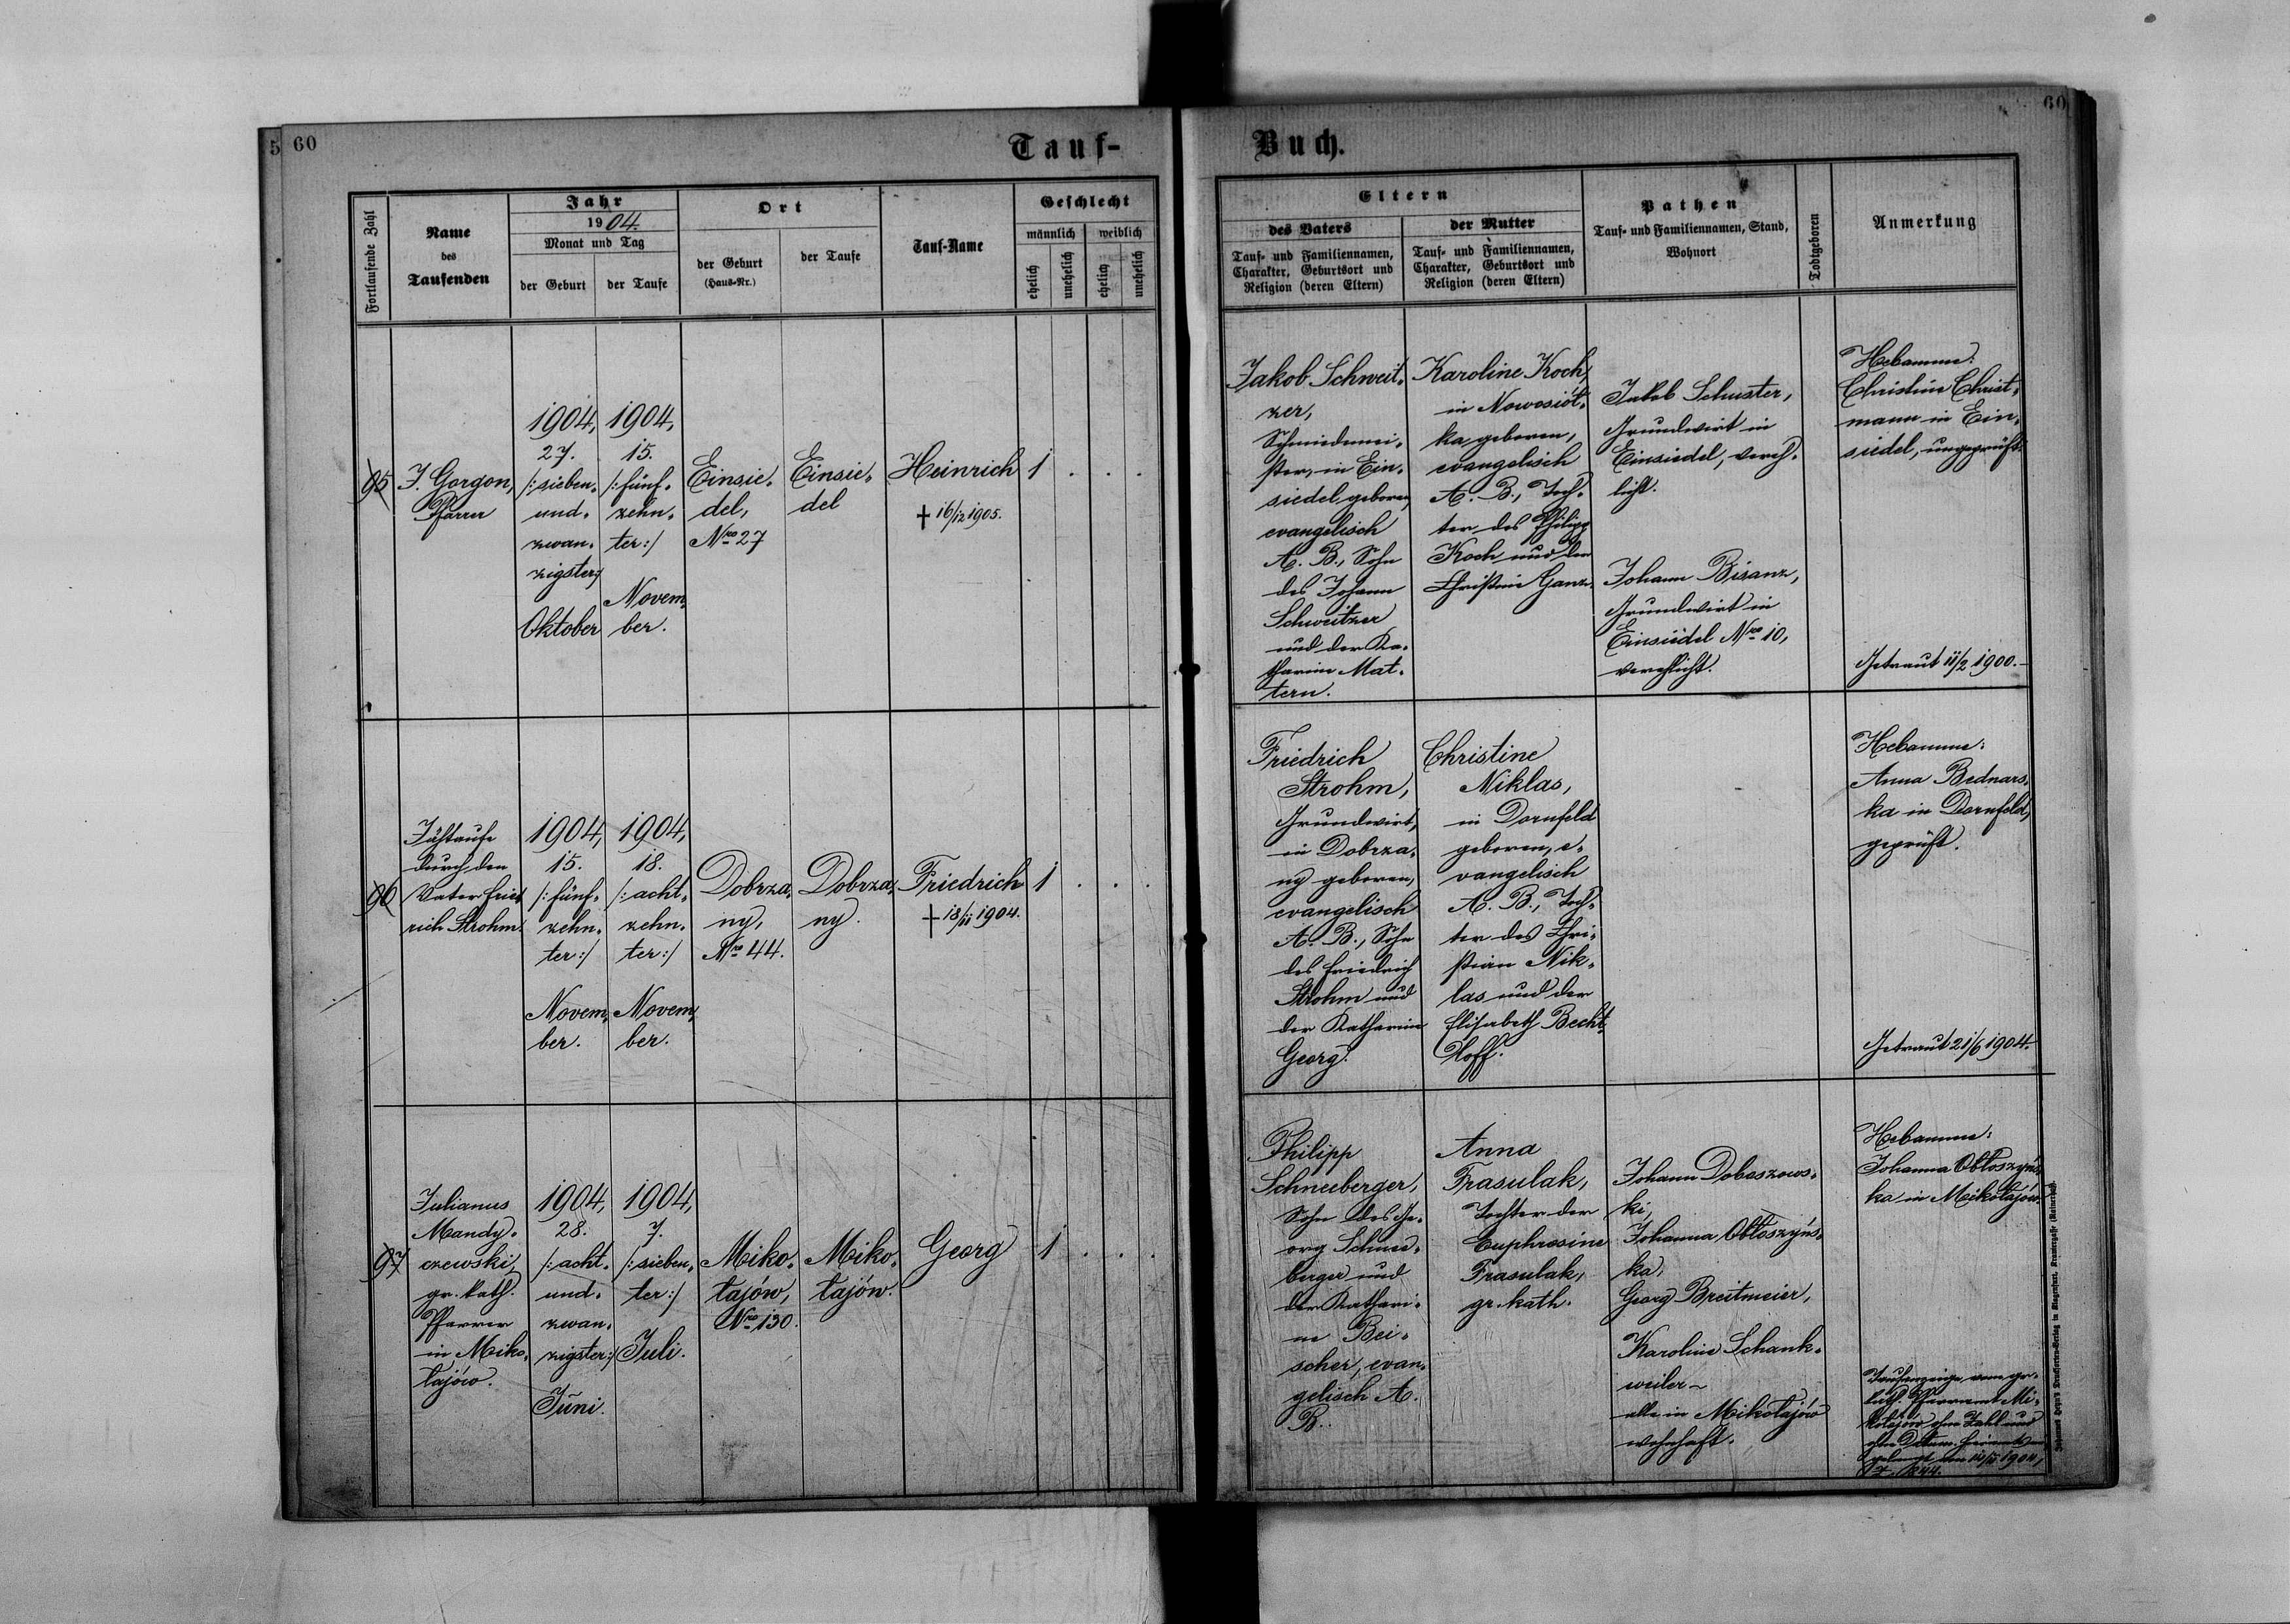 5 60
Tauf-
Fortlaufende Zahl
Name
des
Taufenden
Jahr
1904.
Monat und Tag
der Geburt
der Taufe
Ort
der Geburt
(Haus-Nr.)
der Taufe
Tauf-Name
Geschlecht
männlich
weiblich
ehelich
unehelich
ehelich
unehelich
95
J. Gorgon,
Pfarrer
1904,
27.
/:sieben-
und-
zwan-
zigster:/
Oktober
1904,
15.
/:fünf-
zehn-
ter:/
Novem-
ber.
Einsie-
del,
Nro 27
Einsie-
del
Heinrich
† 16/12 1905.
1 . . .
96
Jähtaufe
durch den
Vater Fried-
rich Strohm.
1904,
15.
/:fünf-
zehn-
ter:/
Novem-
ber.
1904,
18.
/:acht-
zehn-
ter:/
Novem-
ber.
Dobrza-
ny,
Nro 44.
Dobrza-
ny.
Friedrich
† 18/11 1904.
1 . . .
97
Julianus
Mandy-
czewski,
gr. kath.
Pfarrer
in Miko-
łajów.
1904,
28.
/:acht-
und-
zwan-
zigster:/
Juni.
1904,
7.
/:sieben-
ter:/
Juli.
Miko-
łajów,
Nro 130.
Miko-
łajów.
Georg
1 . . .
60
Buch.
Eltern
des Vaters
Tauf- und Familiennamen,
Charakter, Geburtsort und
Religion (deren Eltern)
der Mutter
Tauf- und Familiennamen,
Charakter, Geburtsort und
Religion (deren Eltern)
Pathen
Tauf- und Familiennamen, Stand,
Wohnort
Todtgeboren
Anmerkung
Jakob Schweit-
zer,
Schmiedemei-
ster, in Ein-
siedel geboren,
evangelisch
A. B., Sohn
des Johann
Schweitzer
und der Ka-
tharina Mat-
tern.
Karoline Koch,
in Nowosiół-
ka geboren,
evangelisch
A. B., Toch-
ter des Philipp
Koch und der
Christine Ganz.
Jakob Schuster,
Grundwirt in
Einsiedel, vereh-
licht.
Johann Bisanz,
Grundwirt in
Einsiedel Nro 10,
verehlicht.
Hebamme:
Christine Christ-
mann in Ein-
siedel, ungeprüft.
Getraut 11/2 1900.-
Friedrich
Strohm,
Grundwirt,
in Dobrza-
ny geboren,
evangelisch
A. B., Sohn
des Friedrich
Strohm und
der Katharina
Georg.
Christine
Niklas,
in Dornfeld
geboren, e-
vangelisch
A. B., Toch-
ter des Chri-
stian Nik-
las und der
Elisabeth Becht-
loff.
Hebamme:
Anna Bednars-
ka in Dornfeld,
geprüft.
Getraut 21/6 1904.-
Philipp
Schneeberger,
Sohn des Ge-
org Schnee-
berger und
der Kathari-
na Bei-
scher, evan-
gelisch A.
B.
Anna
Frasulak,
Tochter der
Euphrosine
Frasulak,
gr. kath.
Johann Doboszows-
ki,
Johanna Obłoszyńs-
ka,
Georg Breitmeier,
Karoline Schank-
weiler -
alle in Mikołajów
wohnhaft.
Hebamme:
Johanna Obłoszyńs-
ka in Mikołajów.
Taufanzeige vom gr.
kath. Pfarramt Mi-
kołajów ohne Zahl und
ohne Datum.
1904,